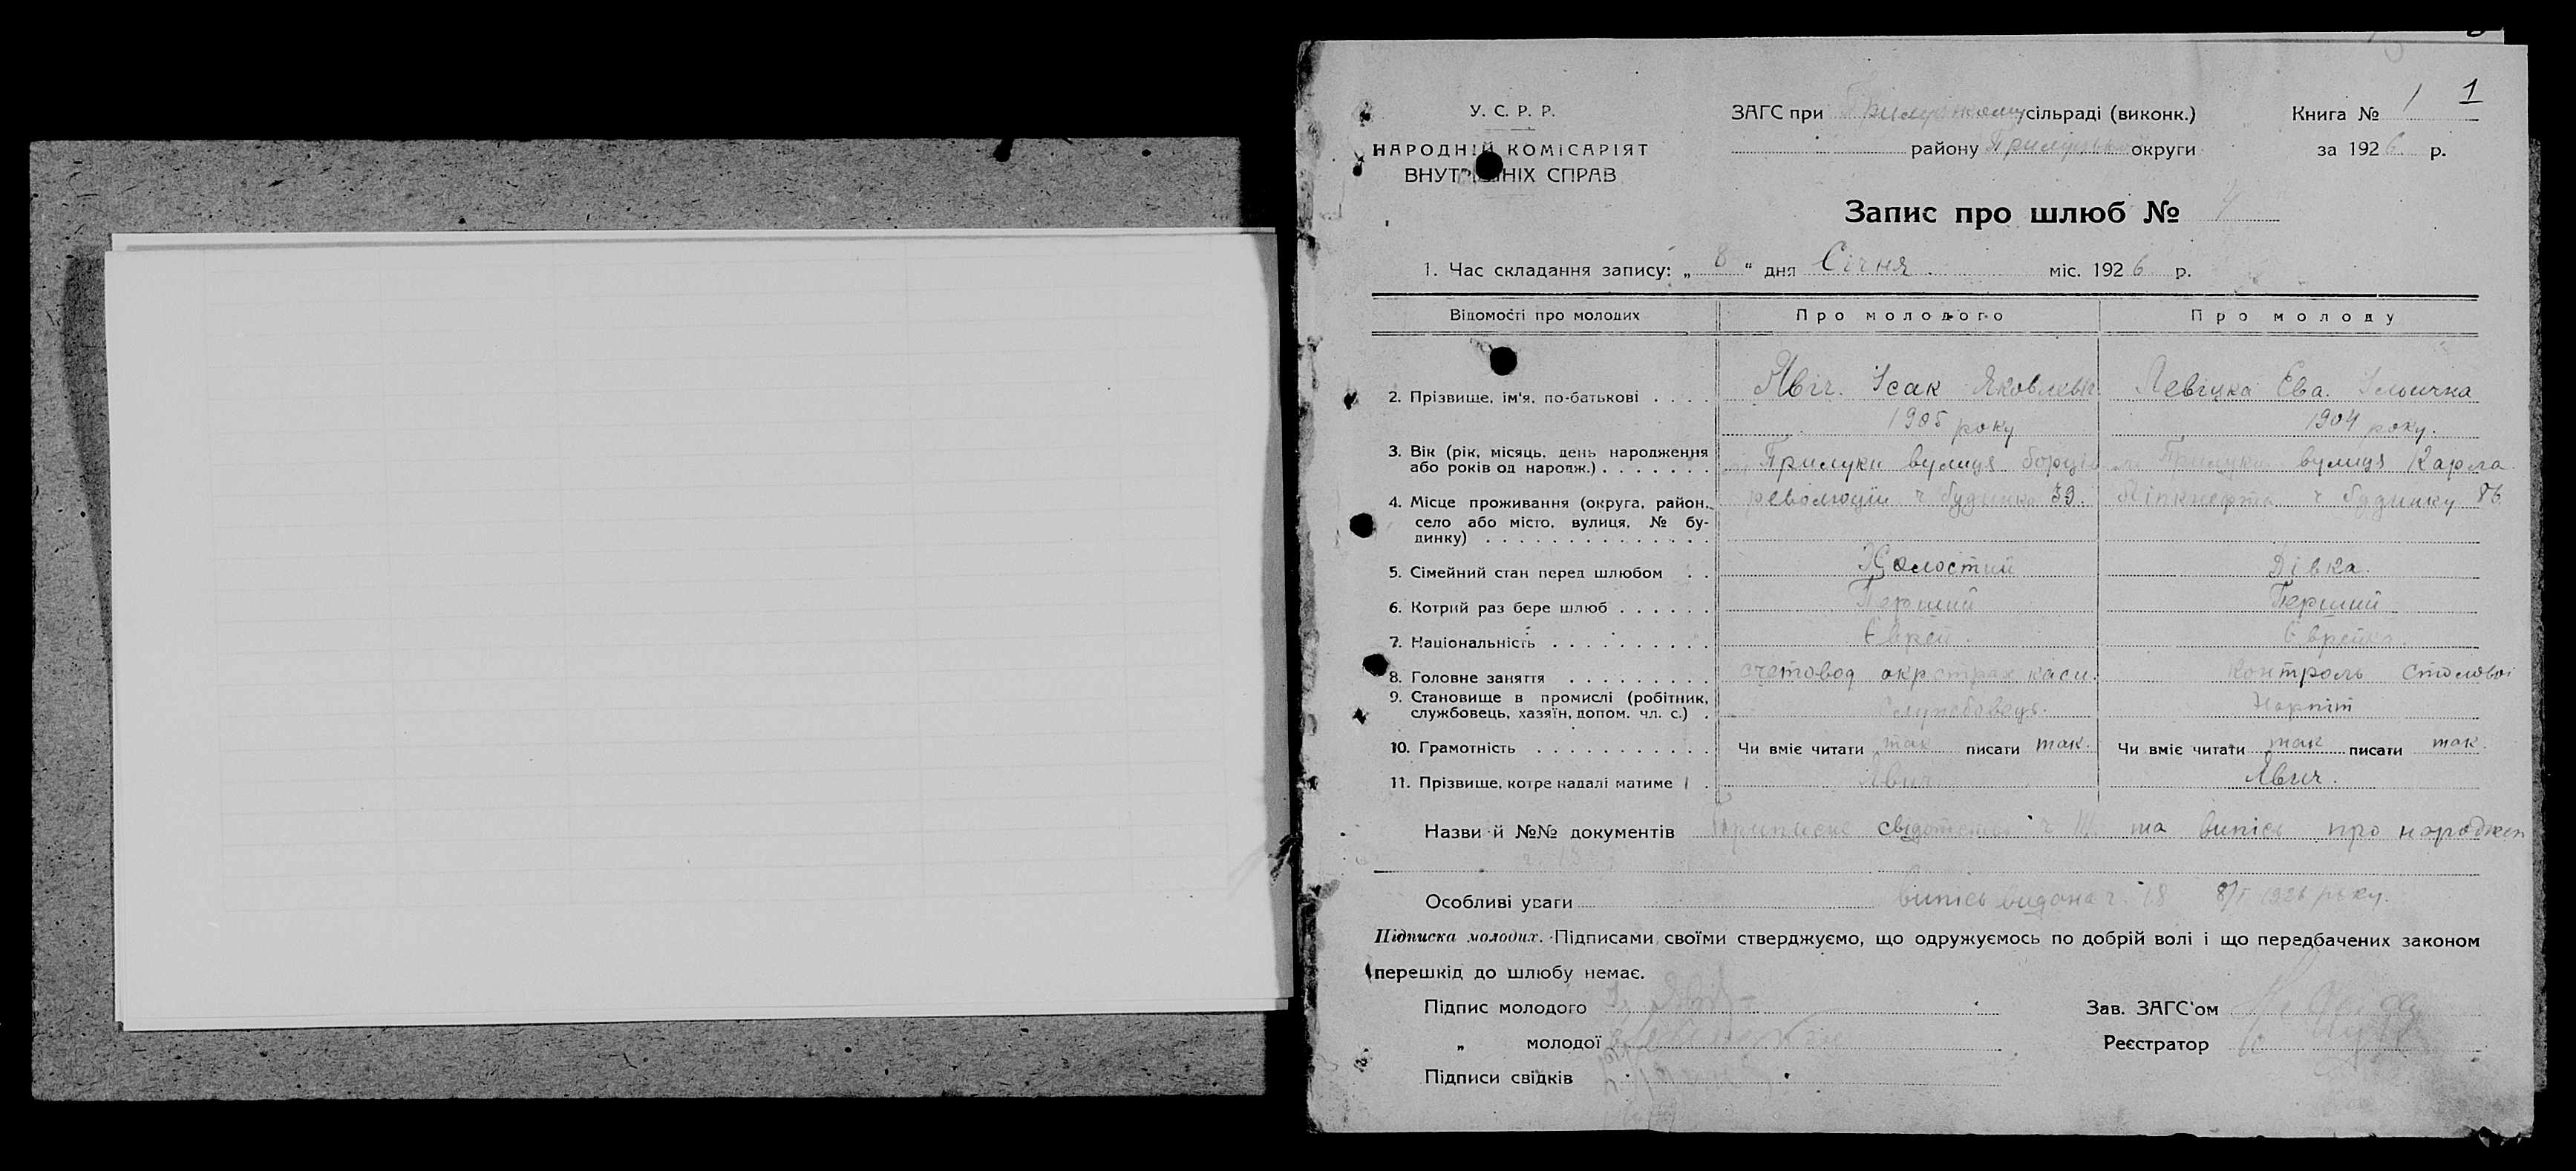 1
У. С. Р. Р.
НАРОДНІЙ КОМІСАРІЯТ
ВНУТРІШНІХ СПРАВ
ЗАГС при сільраді (виконк.)
району Прилуцької округи
Книга № 1
за 1926 р.
Запис про шлюб №
1. Час складання запису: „ 8 “ дня Січня міс. 1926 р.
Відомості про молодих Про молодого Про молоду
2. Прізвище, ім'я, по-батькові . . . . Явіч. Ісак Яковлевіч Левіцка Ева. Ільична
3. Вік (рік, місяць, день народження або років од народж.) . . . . . . . 1905 року 1904 року.
4. Місце проживання (округа, район, село або місто, вулиця, № будинку) . . . . . . . . . . . . . .
Прилуки вулиця борців революции ч будинка 39.
Прилуки вулиця Карла Лібкнехта ч будинку 86
5. Сімейний стан перед шлюбом . . Холостий Дівка.
6. Котрий раз бере шлюб . . . . . . Перший Перший
7. Національність . . . . . . . . . . Еврей. Еврейка.
8. Головне заняття . . . . . . . . . счетовод окрстрах каси. Контроль Столовоі
9. Становище в промислі (робітник, службовець, хазяїн, допом. чл. с.) . Службовець. Нарпіт
10. Грамотність . . . . . . . . . . . Чи вміє читати так писати так. Чи вміє читати так писати так.
11. Прізвище, котре надалі матиме . Явич Явич.
Назви й №№ документів свідотство та випісь про народжен
ч. 13
Особливі уваги випісь видана ч. 18 8/I 1926 року.
Підписка молодих. Підписами своїми стверджуємо, що одружуємось по добрій волі і що передбачених законом
перешкід до шлюбу немає.
Підпис молодого
„ молодої
Підписи свідків
Зав. ЗАГС'ом
Реєстратор